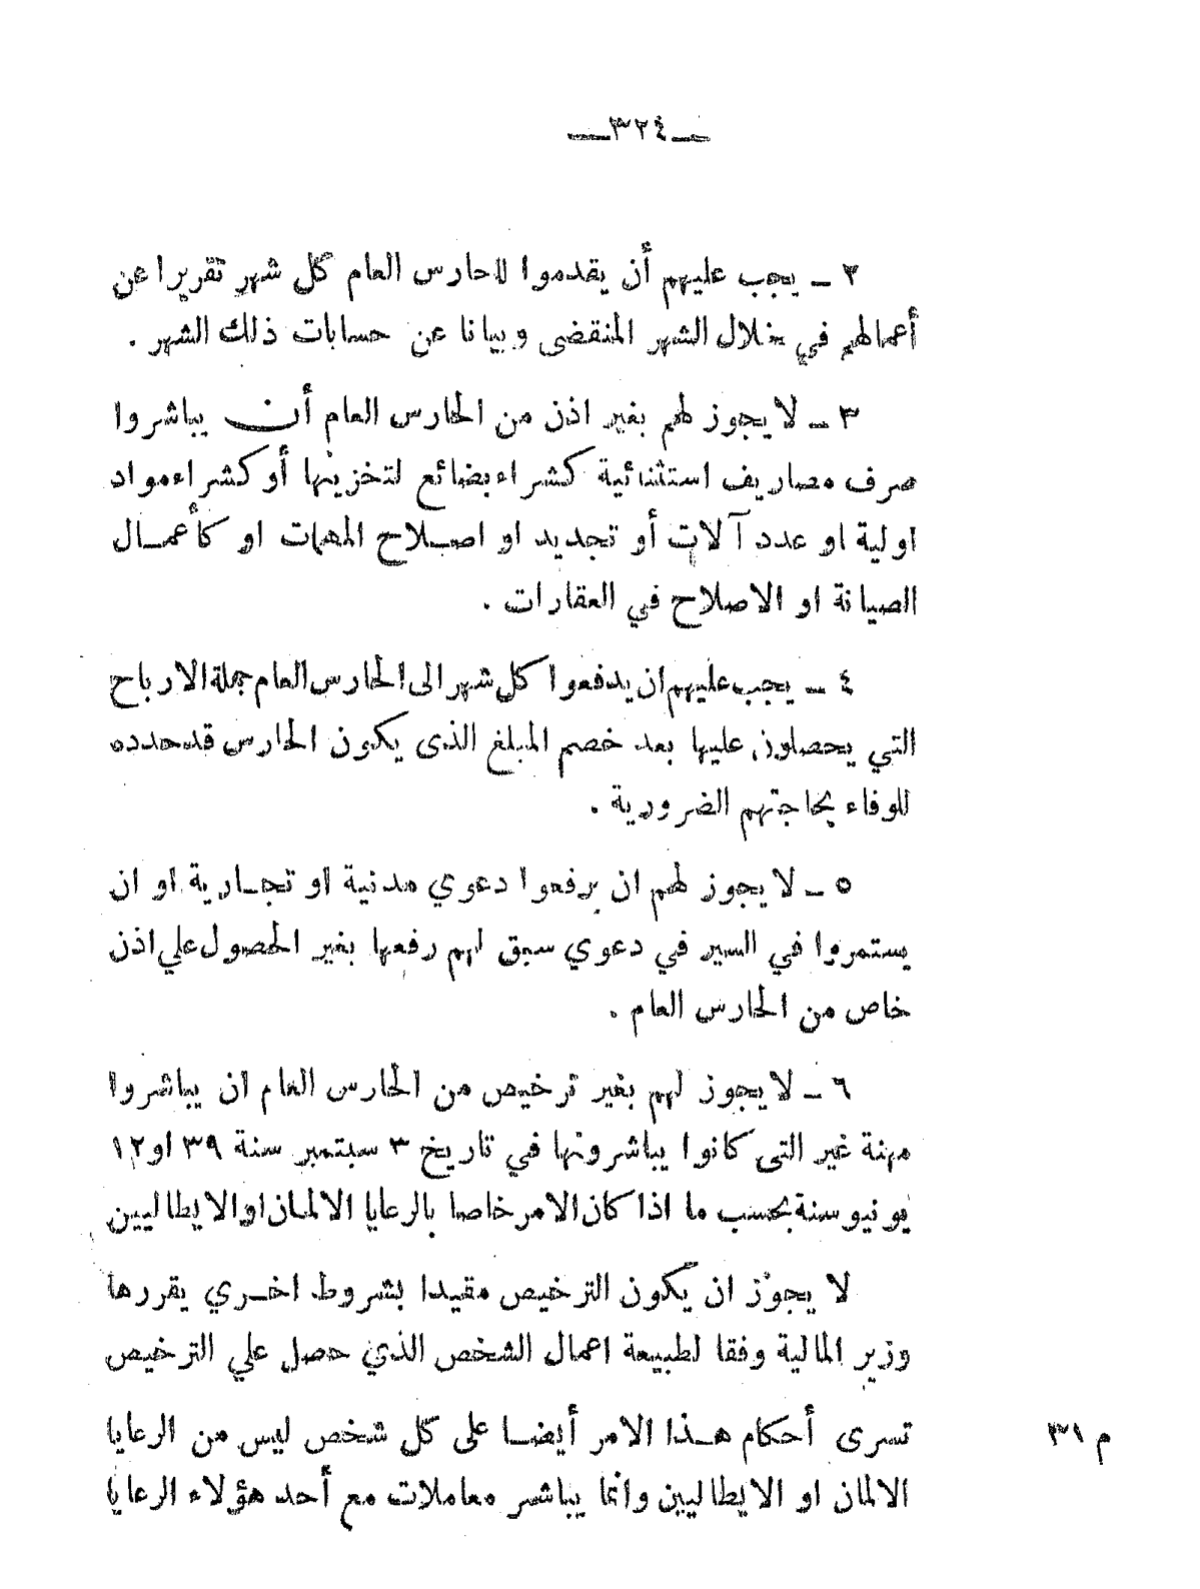 ـ٣٢٤ـ
٢ ـ يجب عليهم أن يقدموا للحارس العام كل شهر تقريرا عن
أعمالهم في خلال الشهر المنقضى وبيانا عن حسابات ذلك الشهر .
٣ ـ لا يجوز لهم بغير اذن من الحارس العام أن يباشروا
صرف مصاريف استثنائية كشراء بضائع لتخزينها أو كشراء مواد
اولية او عدد آلات أو تجديد او اصلاح المهمات او كأعمال
الصيانة او الاصلاح في العقارات .
٤ ـ يجب عليهم ان يدفعوا كل شهر الى الحارس العام جملة الارباح
التي يحصلون عليها بعد خصم المبلغ الذى يكون الحارس قد حدده
للوفاء بحاجتهم الضرورية .
٥ ـ لا يجوز لهم ان يرفعوا دعوي مدنية او تجارية او ان
يستمروا في السير في دعوي سبق لهم رفعها بغير الحصول علي اذن
خاص من الحارس العام .
٦ ـ لا يجوز لهم بغير ترخيص من الحارس العام ان يباشروا
مهنة غير التى كانوا يباشرونها في تاريخ ٣ سبتمبر سنة ٣٩ او ١٢
يونيو سنة بحسب ما اذا كان الامر خاصا بالرعايا الالمان او الايطاليين
لا يجوز ان يكون الترخيص مقيدا بشروط اخري يقررها
وزير المالية وفقا لطبيعة اعمال الشخص الذي حصل علي الترخيص
م ٣١ تسرى أحكام هذا الامر أيضا على كل شخص ليس من الرعايا
الالمان او الايطاليين وانما يباشر معاملات مع أحد هؤلاء الرعايا